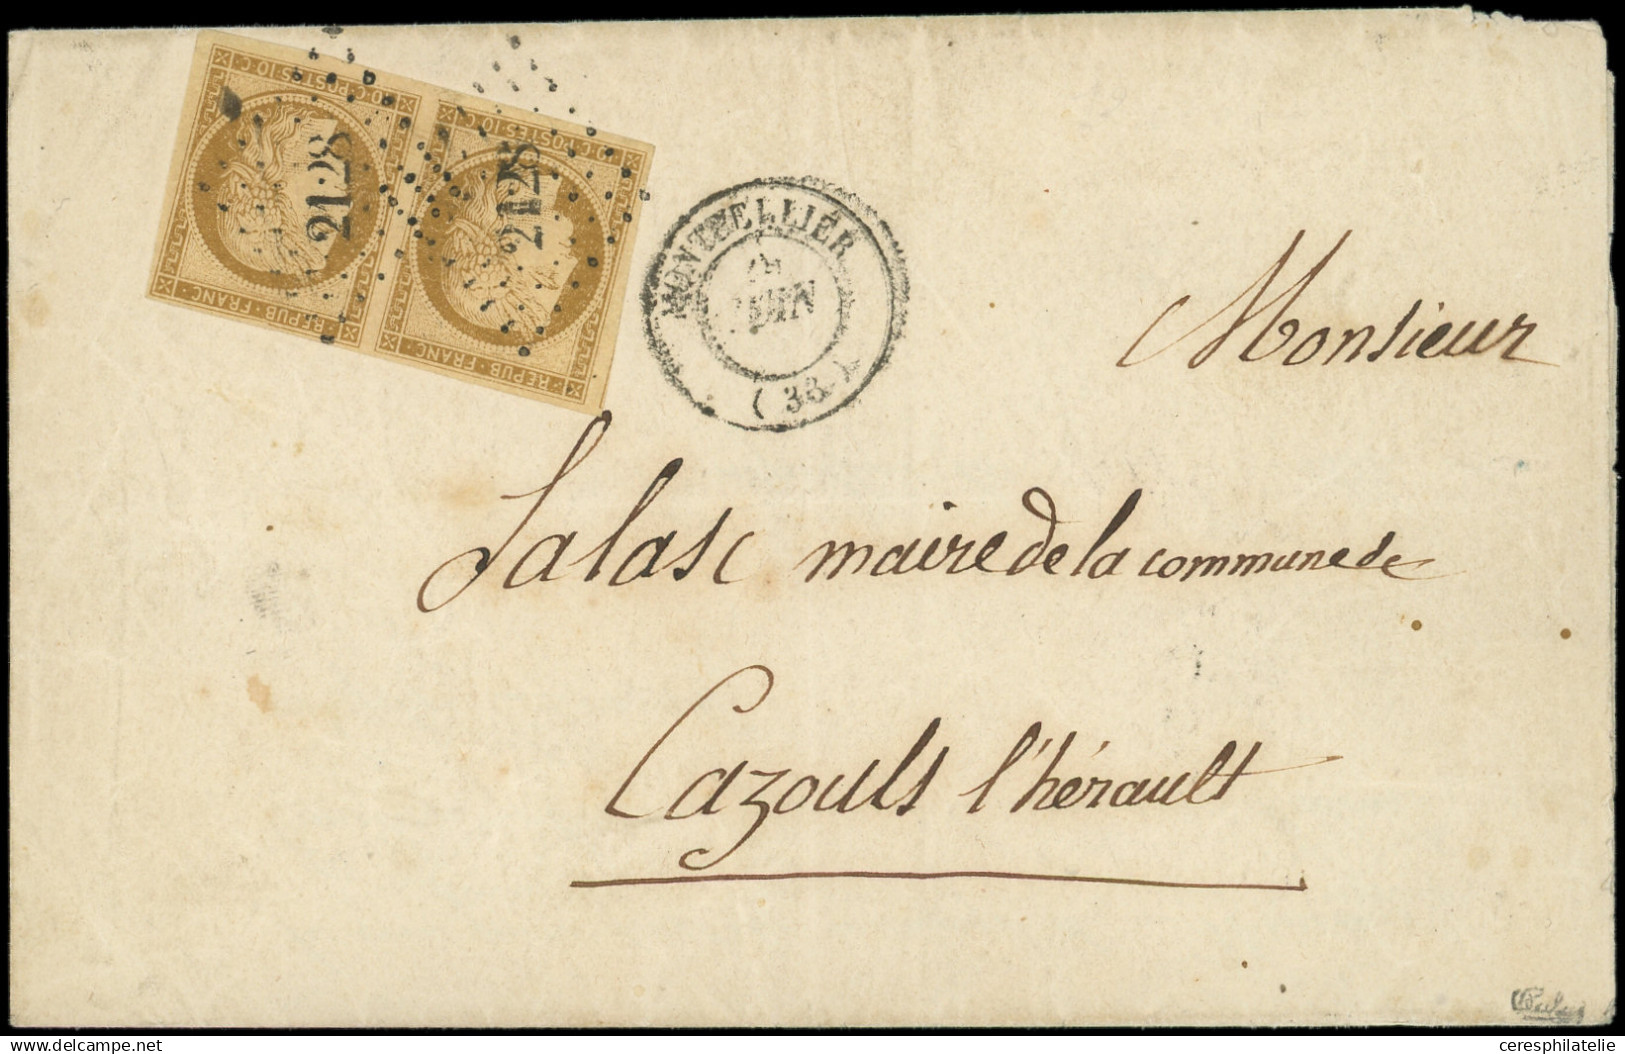 10·C·POSTES·10·C
10·C·POSTES·10·C
REPUB·FRANC·
REPUB·FRANC·
2128
2128
MONTPELLIER
JUIN
( 33 )
Monsieur
Salasc maire de la commune de
Cazouls l'hérault
ceresphilatelie